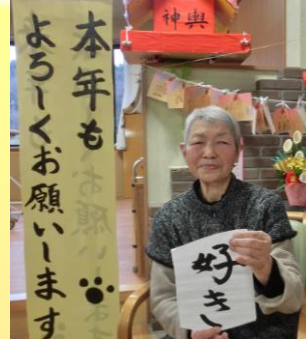 本年も
よろしくお願いします
神輿
好き